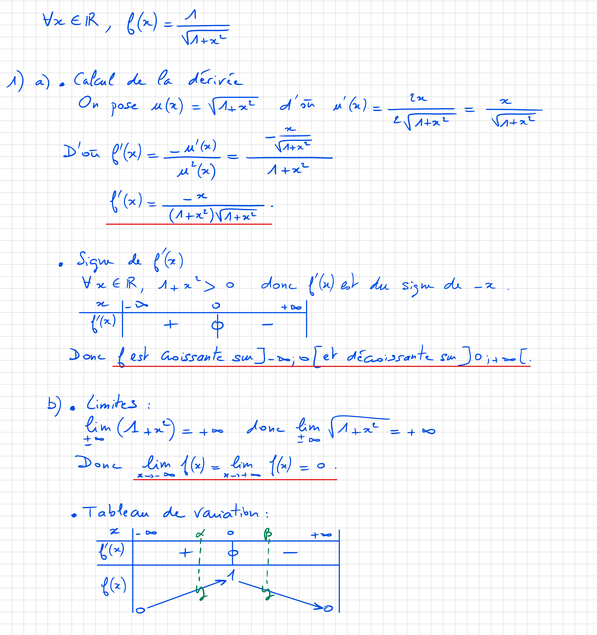 ∀x ∈ ℝ, f(x) = 1/√(1+x²)
1) a) • Calcul de la dérivée
On pose u(x) = √(1+x²) d'où u'(x) = 2x/(2√(1+x²)) = x/√(1+x²)
D'où f'(x) = -u'(x)/u²(x) = (-x/√(1+x²))/(1+x²)
f'(x) = -x/((1+x²)√(1+x²)).
• Signe de f'(x)
∀x ∈ ℝ, 1+x² > 0 donc f'(x) est du signe de -x.
x -∞ 0 +∞
f'(x) + 0 -
Donc f est croissante sur ]-∞;0[ et décroissante sur ]0;+∞[.
b) • Limites :
lim ±∞ (1+x²) = +∞ donc lim ±∞ √(1+x²) = +∞
Donc lim x→-∞ f(x) = lim x→+∞ f(x) = 0.
• Tableau de variation :
x -∞ α 0 β +∞
f'(x) + 0 -
f(x) 0 y 1 y 0